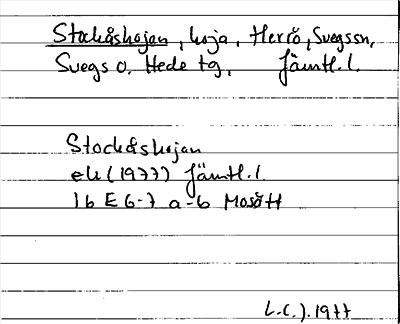 Stockåskojan, koja, Herrö, Svegs sn,
Svegs o. Hede tg, Jämtl. l.
Stockåskojan
ek (1977) Jämtl. l.
16 E 6-7 a-b Mosätt
L.C.J. 1977